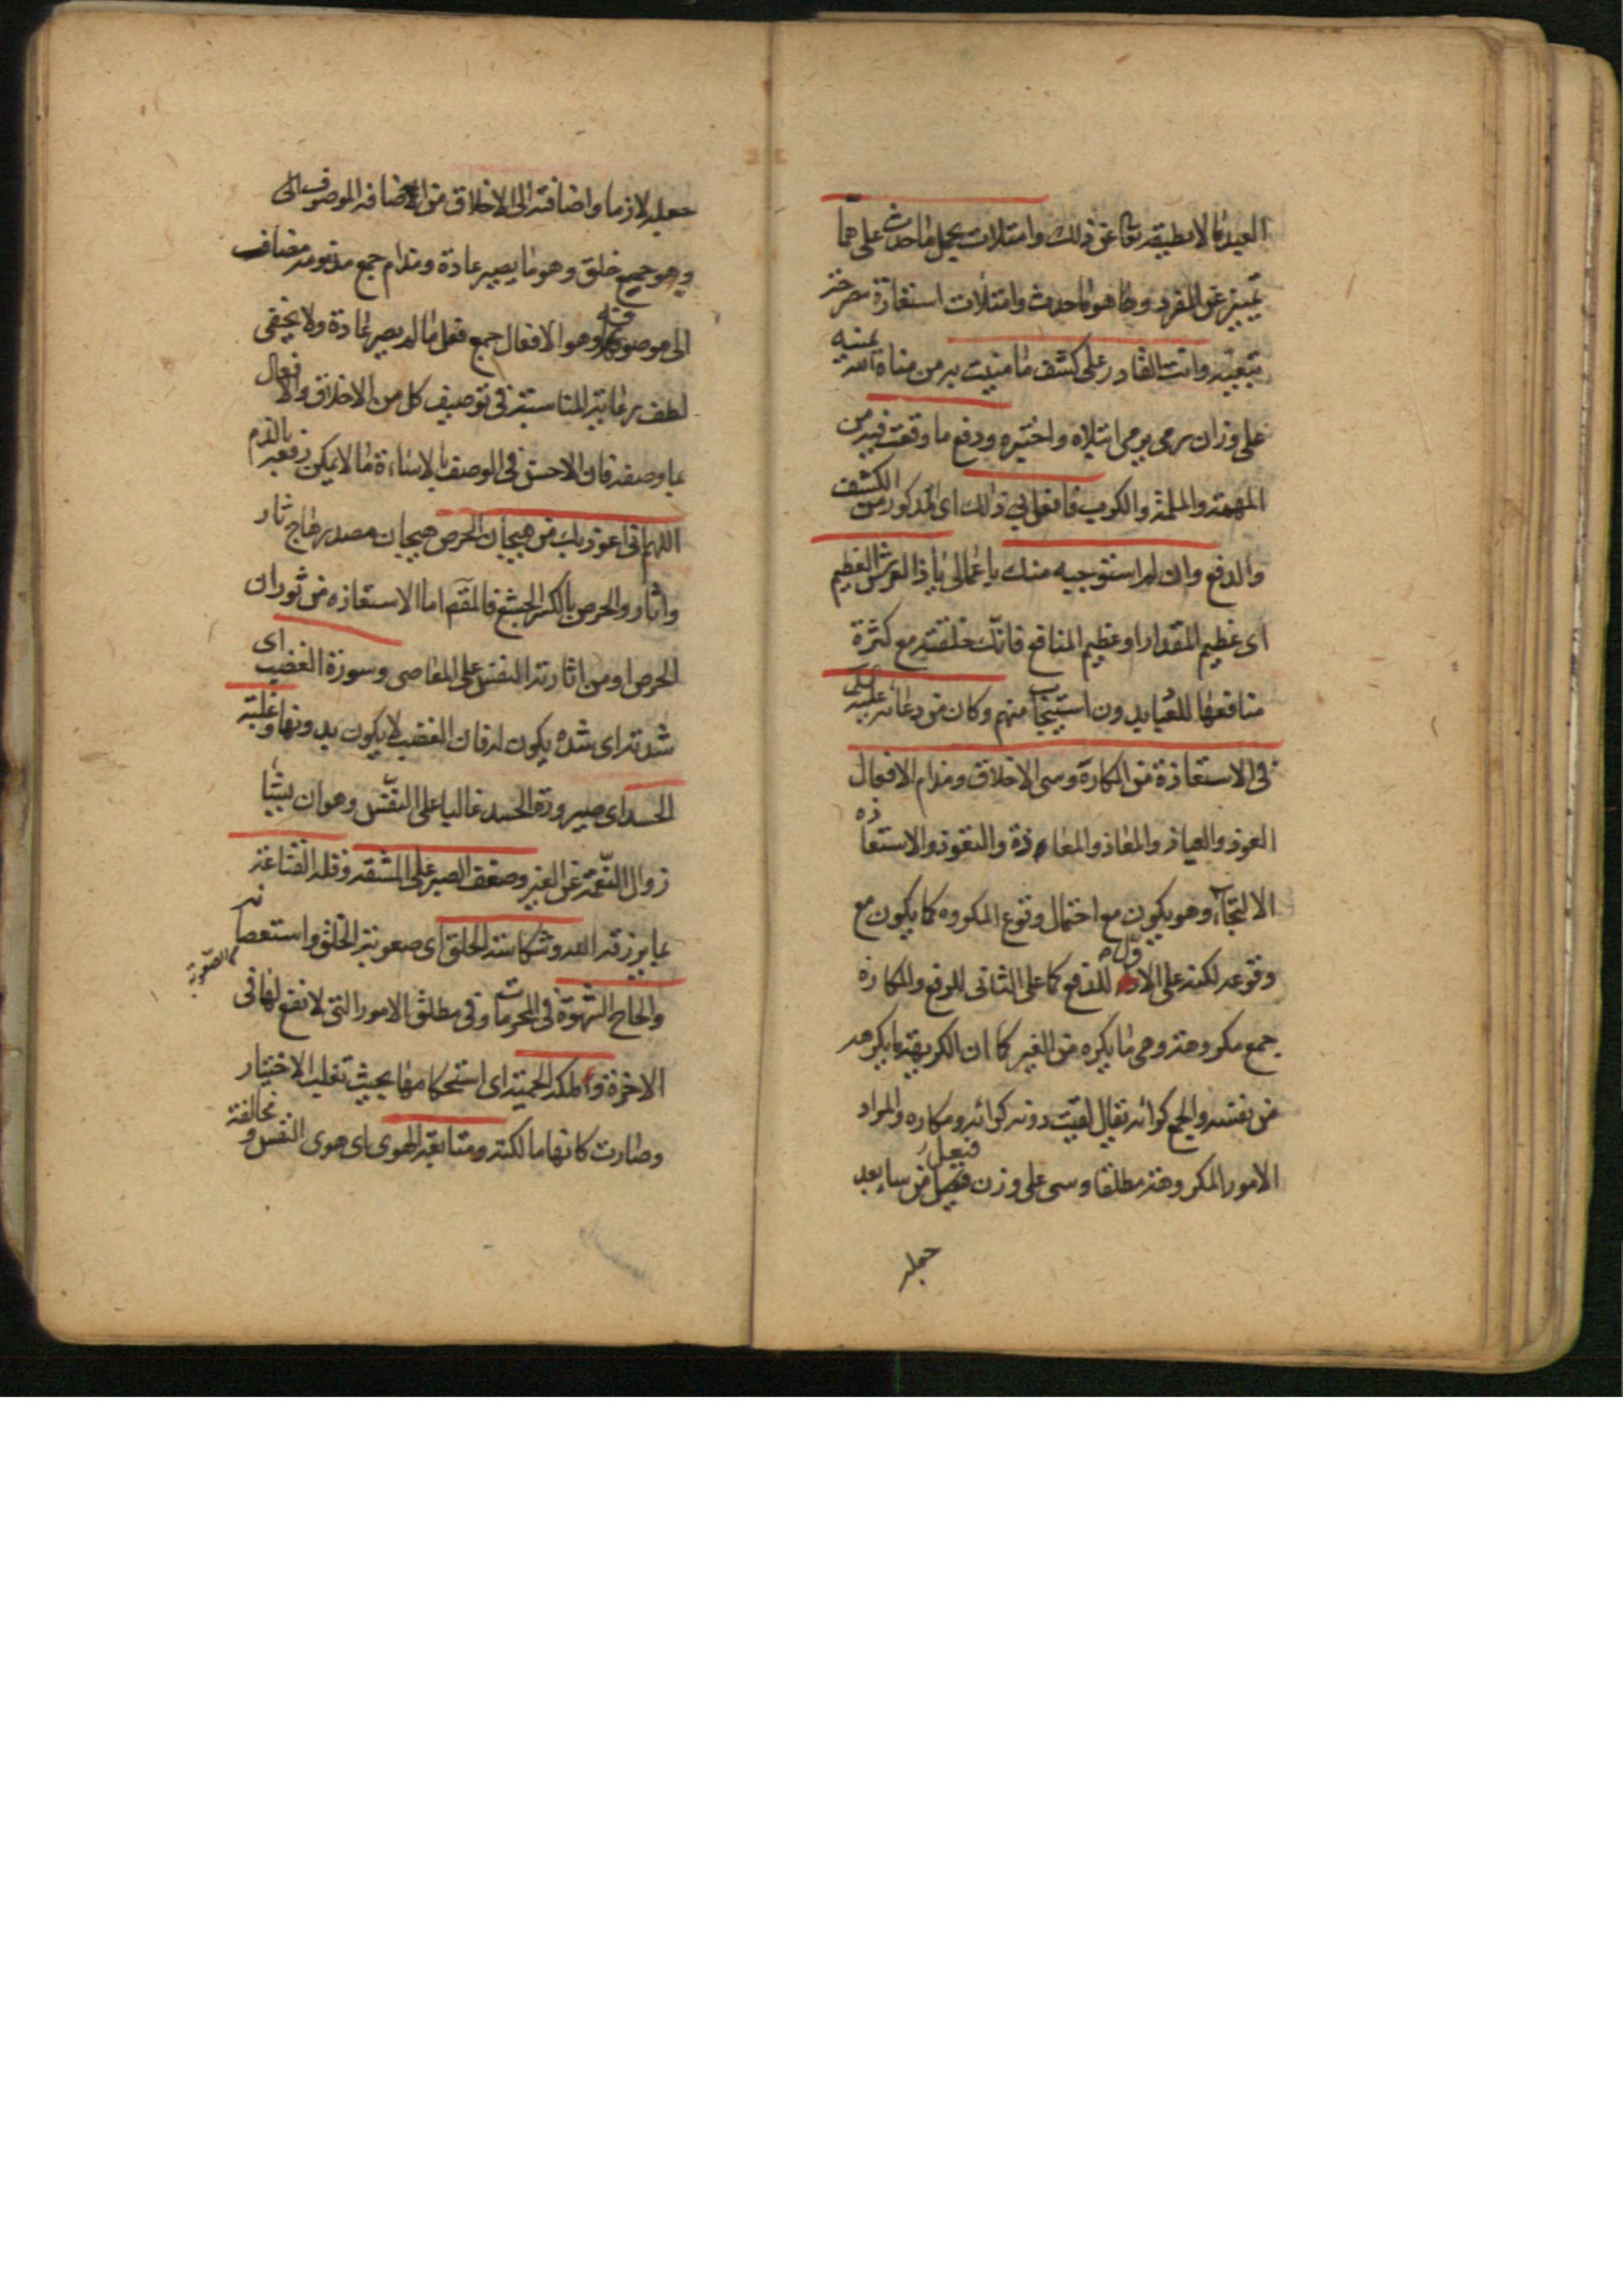 العبد ما لا يطيقه تعالى عن ذلك وامتلات بحمل ما حدث على هما
تميز عن المفرد وما هو ما حدث وامتلات استعارة مصرحة
تبعية وانت القادر على كشف ما منيت به من مناه الله يمنيه
على وزان رمى يرمى ابتلاه واختبره ودفع ما وقعت فيه من
المهمة والملمة والكرب فافعل بي ذلك اى المذكور من الكشف
والدفع وان لم استوجبه منك يا عمالى يا ذا العرش العظيم
اى عظيم المقدار او عظيم المنافع فانك خلقته مع كثرة
منافعها للعباد بدون استيجاب منهم وكان من دعائه عليه
فى الاستعاذة من المكاره وسيئ الاخلاق ومذام الافعال
العوذ والعياذ والمعاذ والمعاذة والتعوذ والاستعاذه
الالتجاء وهو يكون مع احتمال وقوع المكروه كما يكون مع
وقوعه لكنه على الاول للدفع كما على الثانى للرفع والمكاره
جمع مكروهة وهى ما يكره من الغير كما ان الكريهة ما يكرهه
من نفسه والجمع كرائه يقال لقيت دونه كرائه ومكاره والمراد
الامور المكروهة مطلقا وسيئ على وزن فيعل من ساء بعد
جعله
جعله لازما واضافته الى الاخلاق من اضافه الموصوف الى
وهو جمع خلق وهو ما يصير عادة ومذام جمع مذمومه مضاف
الى موصوفه وهو الافعال جمع فعل ما لم يصر عادة ولا يخفى
لطف رعاية المناسبة فى توصيف كل من الاخلاق والافعال
بما وصفه فان الاحسن فى الوصف بالاساءة ما لا يمكن رفعه بالذم
اللهم انى اعوذ بك من هيجان الحرص هيجان مصدر هاج ثار
واثار والحرص بالكسر الجشع فالمقصم اما الاستعاذه من ثوران
الحرص او من اثارته النفس على المعاصى وسورة الغضب اى
شدته اى شده يكون لا فان الغضب لا يكون بدونها وغلبة
الحسد اى صيرورة الحسد غالبا على النفس وهو ان يشا
زوال النعمة عن الغير وضعف الصبر على المشقه وقله القناعة
بما يرزقه الله وشكاسة الخلق اى صعوبة الخلق واستعصائه
الصعوبة
والحاح الشهوة فى المحرمات وفى مطلق الامور التى لا نفع لها فى
الاخرة وملكة الحمية اى استحكامها بحيث تغلب الاختيار
وصارت كانها مالكته ومتابعة الهوى اى هوى النفس ومخالفة